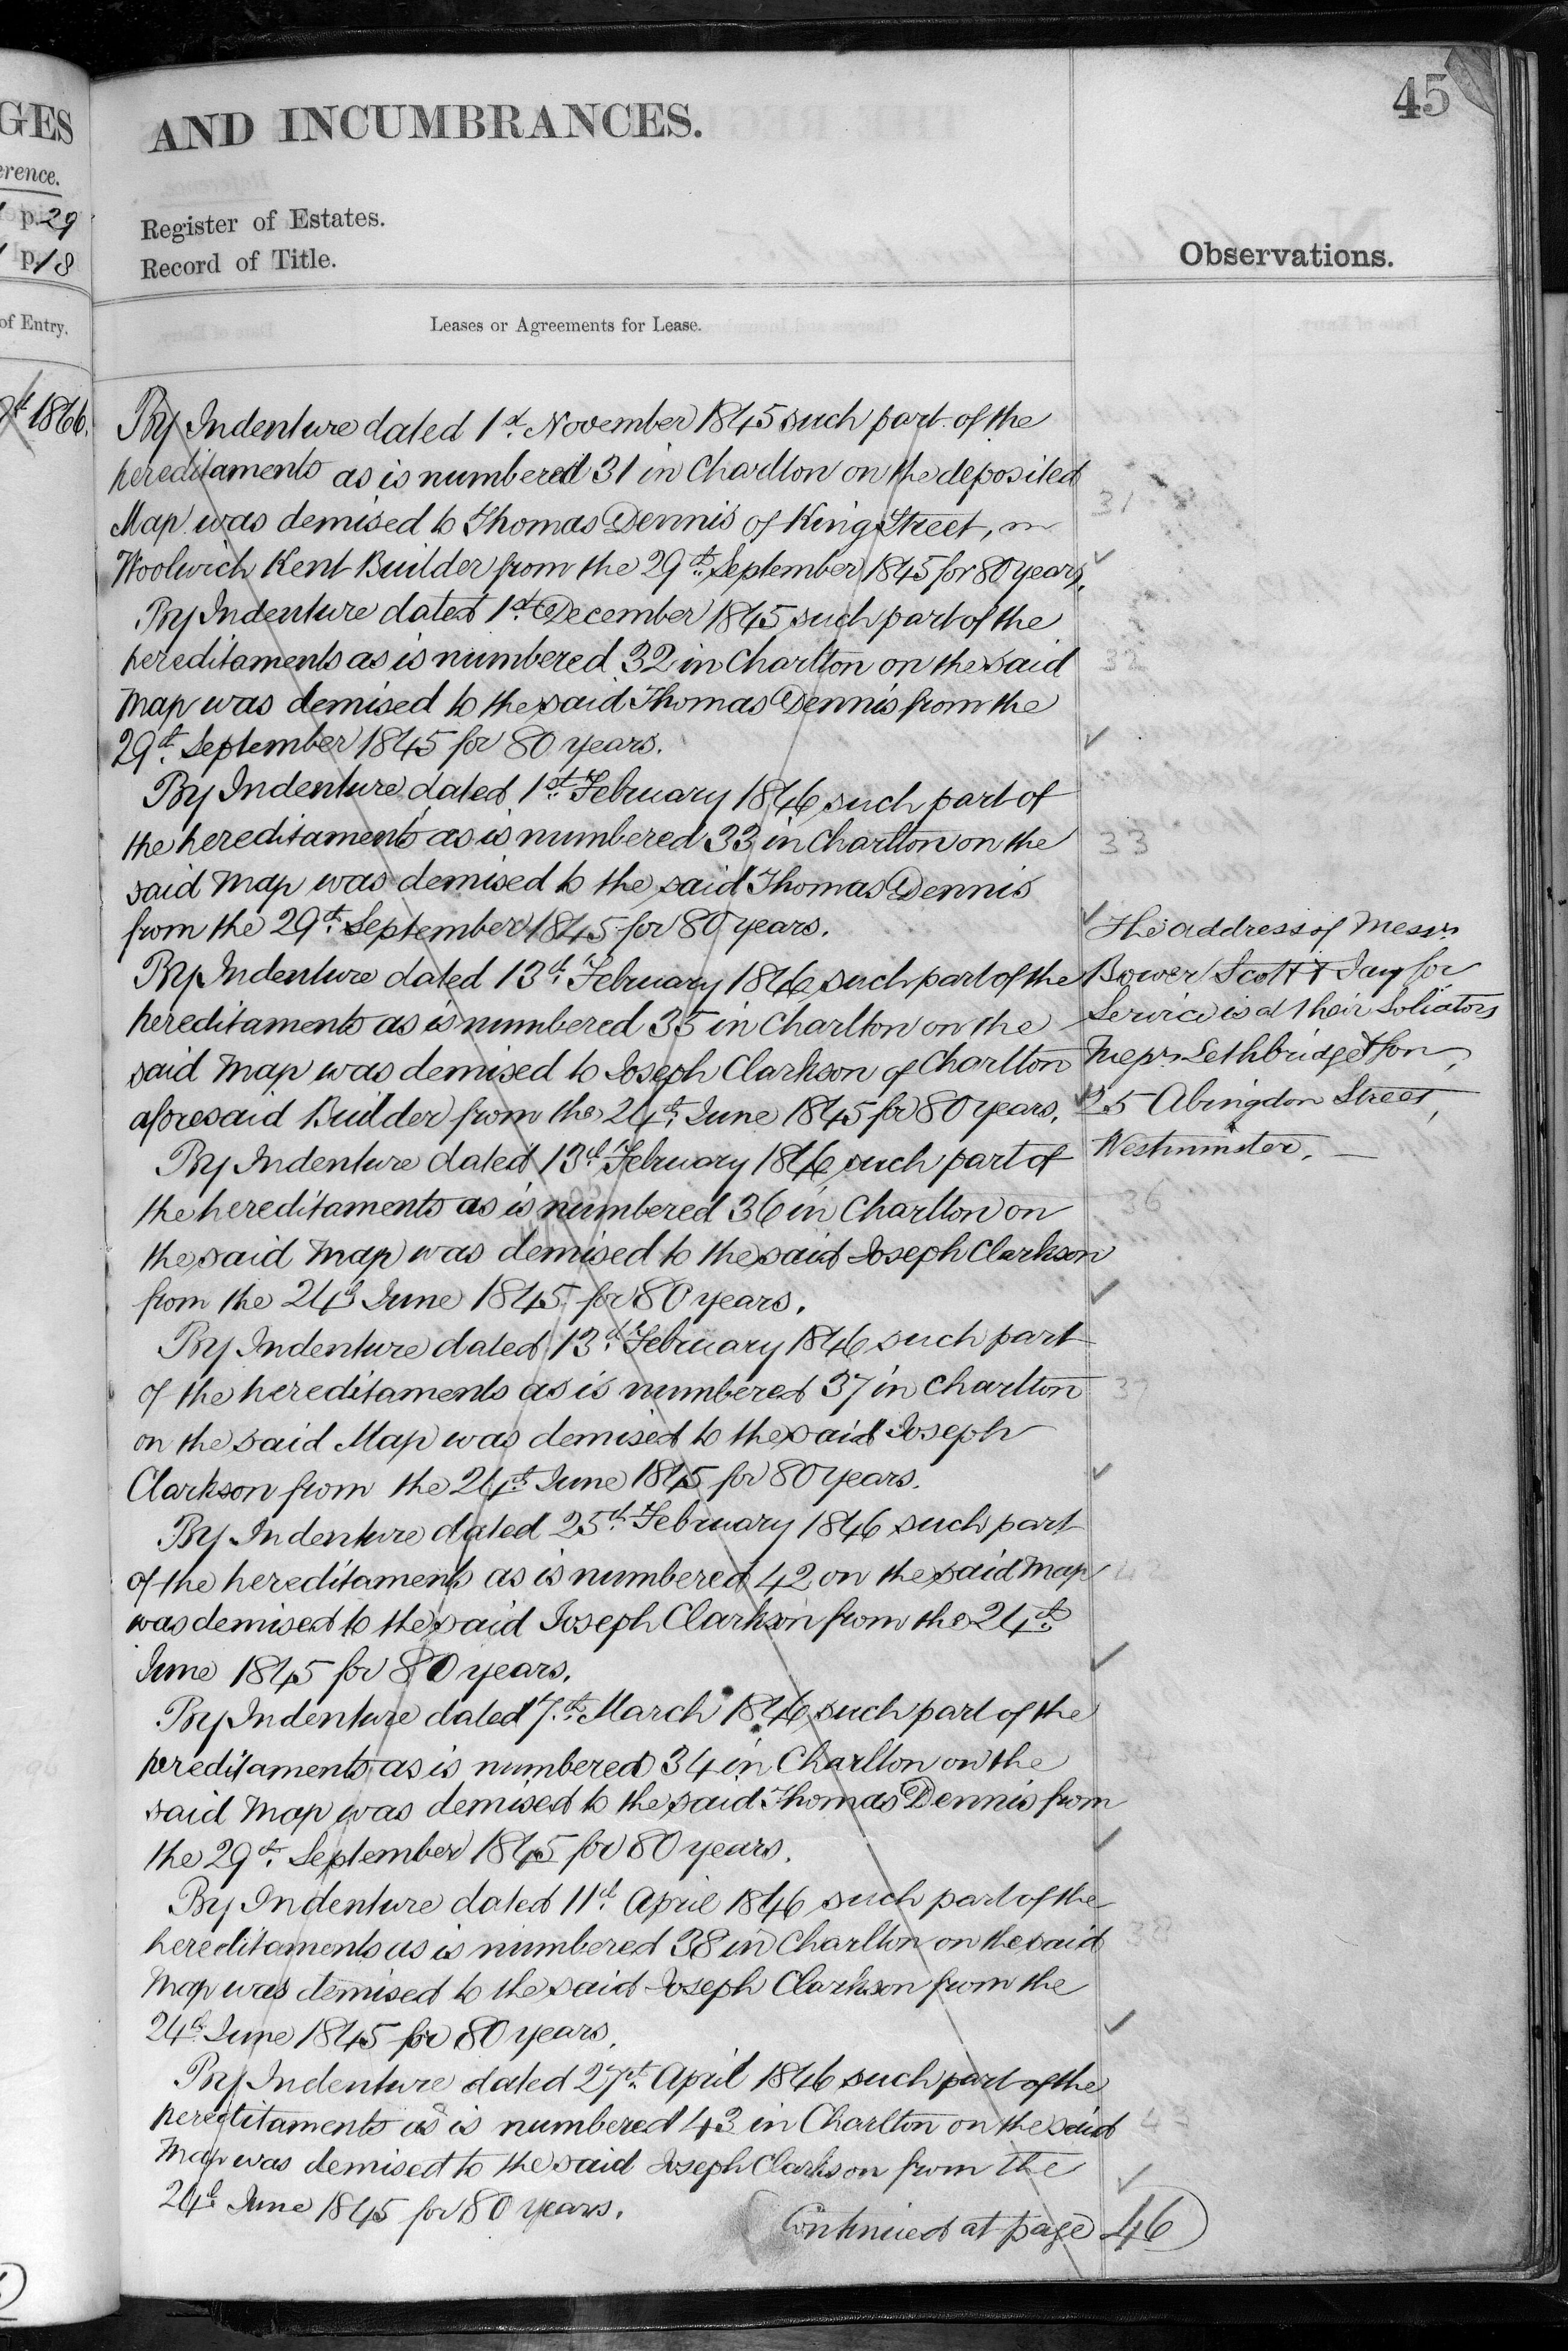 GES
erence.
p. 29
p. 18
of Entry.
1866.
45
AND INCUMBRANCES.
Register of Estates.
Record of Title.
Observations.
Leases or Agreements for Lease.
By Indenture dated 1st. November 1845 such part of the
hereditaments as is numbered 31 in Charlton on the deposited
31
Map was demised to Thomas Dennis of King Street, in
Woolwich Kent Builder from the 29th. September 1845 for 80 years.
By Indenture dated 1st. December 1845 such part of the
hereditaments as is numbered 32 in Charlton on the said
32
Map was demised to the said Thomas Dennis from the
29th. September 1845 for 80 years.
By Indenture dated 1st. February 1846 such part of
the hereditaments as is numbered 33 in Charlton on the
33
said Map was demised to the said Thomas Dennis
from the 29th. September 1845 for 80 years.
By Indenture dated 13th. February 1846 such part of the
hereditaments as is numbered 35 in Charlton on the
said Map was demised to Joseph Clarkson of Charlton
aforesaid Builder from the 24th. June 1845 for 80 years.
The address of Messrs
Bower Scott & Jay for
Service is at their Solicitors
Messrs Lethbridge & Son,
25 Abingdon Street,
Westminster.
By Indenture dated 13th. February 1846 such part of
the hereditaments as is numbered 36 in Charlton on
36
the said Map was demised to the said Joseph Clarkson
from the 24th June 1845 for 80 years.
By Indenture dated 13th. February 1846 such part
of the hereditaments as is numbered 37 in Charlton
37
on the said Map was demised to the said Joseph
Clarkson from the 24th. June 1845 for 80 years.
By Indenture dated 25th. February 1846 such part
of the hereditaments as is numbered 42 on the said Map
42
was demised to the said Joseph Clarkson from the 24th.
June 1845 for 80 years.
By Indenture dated 7th. March 1846 such part of the
hereditaments as is numbered 34 in Charlton on the
34
said Map was demised to the said Thomas Dennis from
the 29th. September 1845 for 80 years.
By Indenture dated 11th. April 1846 such part of the
hereditaments as is numbered 38 in Charlton on the said
38
Map was demised to the said Joseph Clarkson from the
24th. June 1845 for 80 years.
By Indenture dated 27th. April 1846 such part of the
hereditaments as is numbered 43 in Charlton on the said
43
Map was demised to the said Joseph Clarkson from the
24th. June 1845 for 80 years.
Continued at page 46